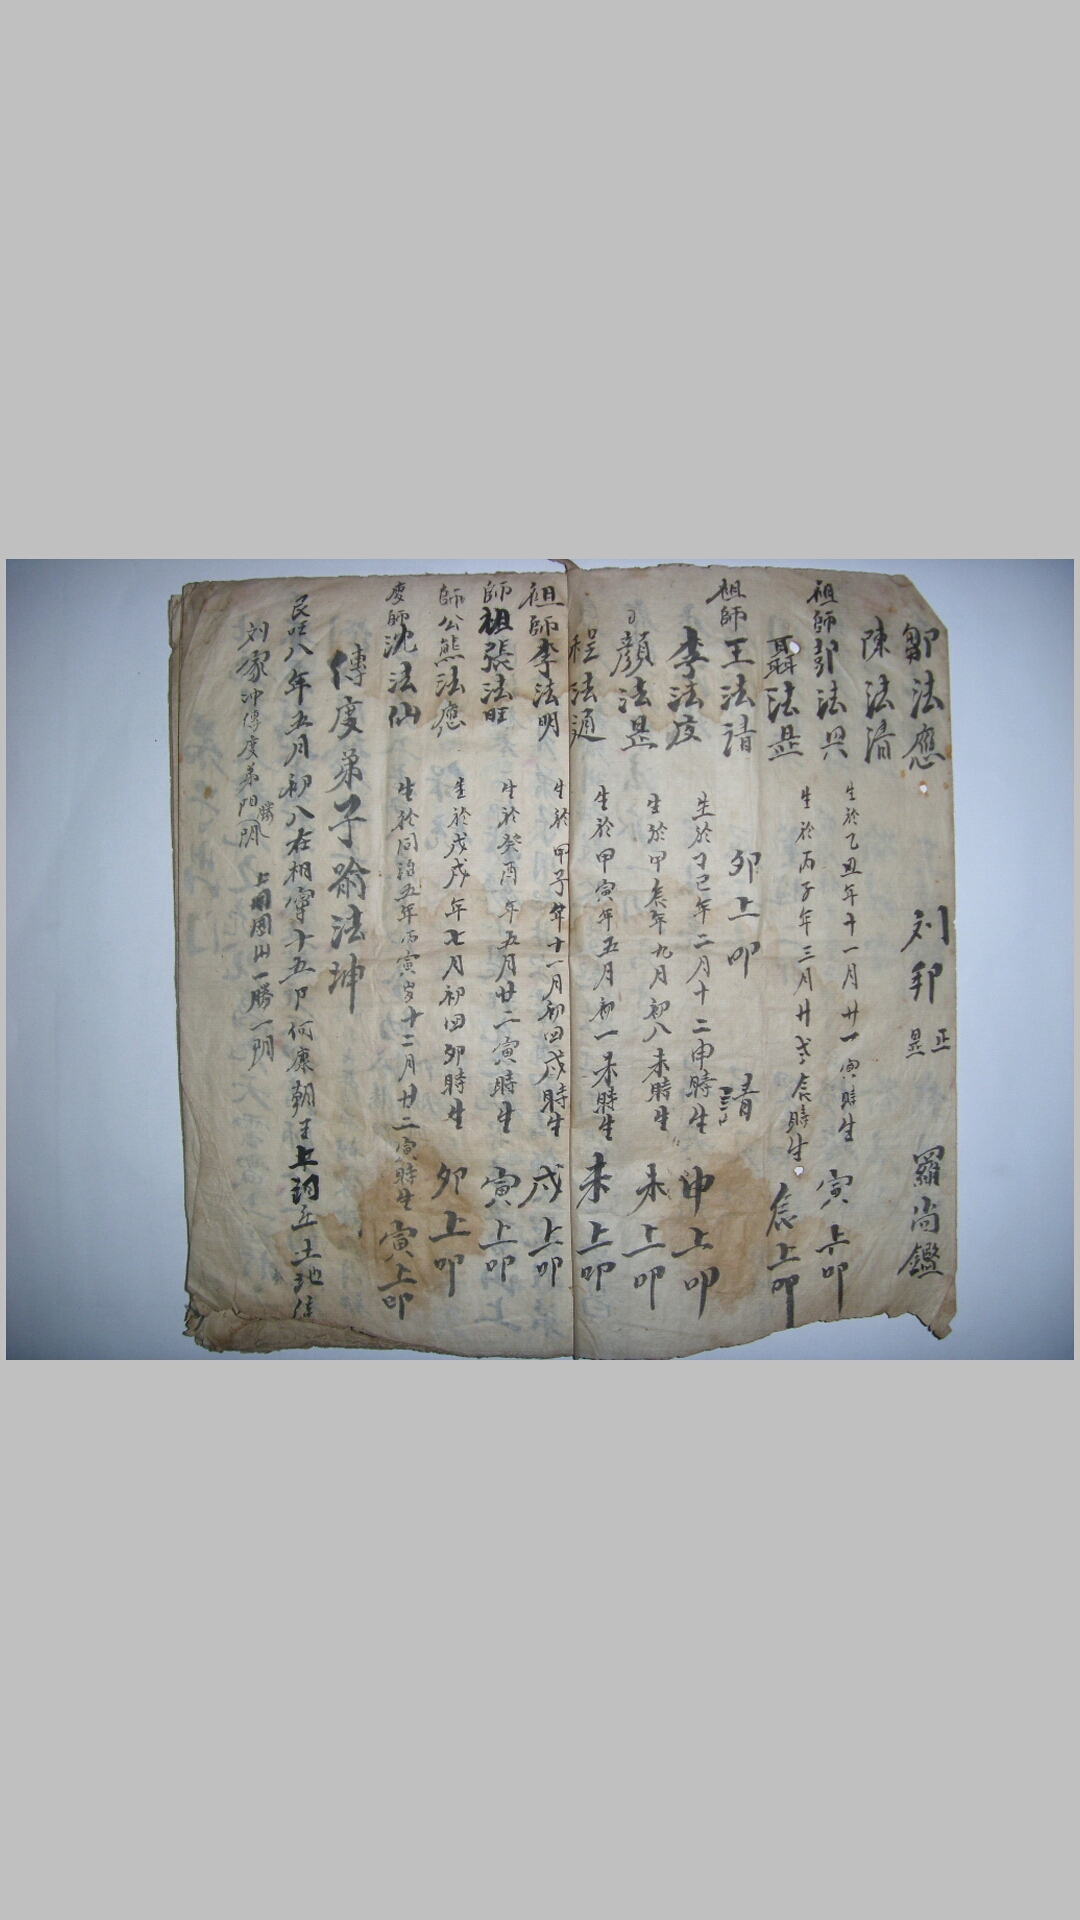 鄒法應 刘邦 正 羅尚鑑
陳法清
祖師彭法興 生於乙丑年十一月廿一寅時生 寅上卯
聶法是 生於丙子年三月廿 辰時生 辰上卯
祖師王法請 卯上卯 請
李法度 生於丁巳年二月十二申時生 申上卯
顏法是 生於甲辰年九月初八未時生 未上卯
程法通 生於甲寅年五月初一未時生 未上卯
祖師李法明 生於甲子年十一月初四戌時生 戌上卯
師祖張法旺 生於癸酉年五月廿二寅時生 寅上卯
師公熊法應 生於戊戌年七月初四卯時生 卯上卯
度師沈法仙 生於同治五年丙寅岁十二月廿二寅時生 寅上卯
傳度弟子喻法坤
民 八年五月初八在相 十五 何康朝王上 土地
刘家冲傳度弟 勝明 上 一勝一明